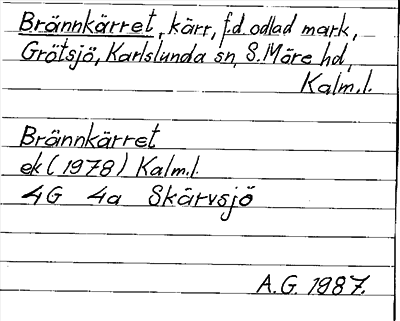 Brännkärret, kärr, f.d. odlad mark,
Grötsjö, Karlslunda sn, S. Möre hd,
Kalm.l.
Brännkärret
ek (1978) Kalm.l.
4G 4a Skärvsjö
A.G. 1987.